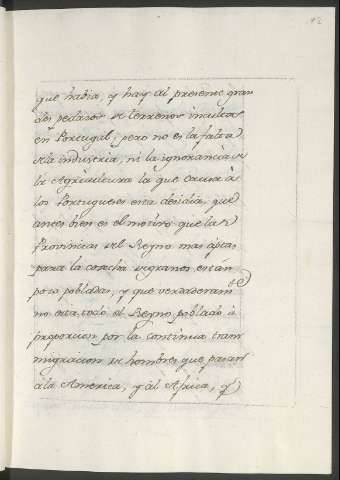 12
que habia, y hay al presente gran
des pedazos de terrenos incultos
en Portugal, pero no es la falta
de la industria, ni la ignorancia de
la Agricultura la que causa à
los Portugueses esta desidia, que
antes bien es el motivo que las
Provincias del Reyno mas aptas
para la cosecha de granos están
poco pobladas, y que verdaderam.te
no esta todo el Reyno poblado à
proporcion por la continua trans
migracion de hombres que pasan
à la America, y al Africa, y